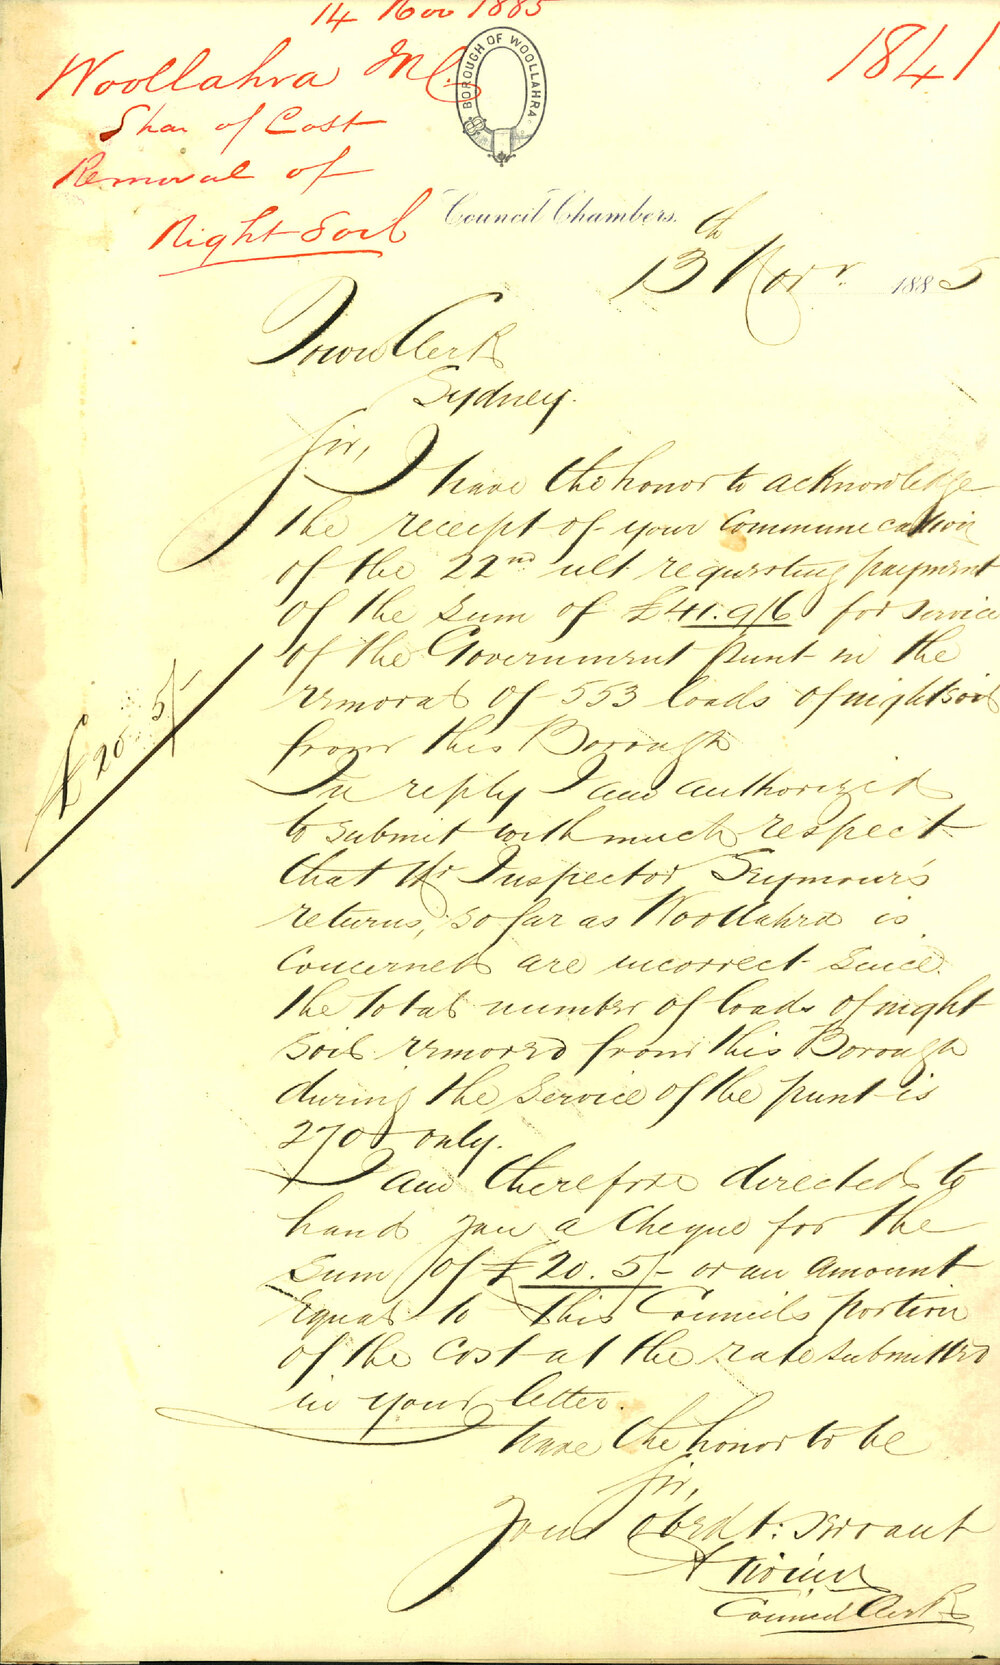 14 Nov 1885
1841
Woollahra M.C.
Shar of Cost
Removal of
Night Soil
BOROUGH OF WOOLLAHRA
Council Chambers.
13th Novr. 1885
Town Clerk
Sydney.
Sir,
I have the honor to acknowledge
the receipt of your communication
of the 22nd ult requesting payment
of the sum of £41.9/6 for service
of the Government punt in the
removal of 553 loads of nightsoil
from this Borough
£20. 5/-
In reply I am authorized
to submit with much respect
that Mr Inspector Seymour's
returns, so far as Woollahra is
concerned are incorrect since
the total number of loads of night
soil removed from this Borough
during the service of the punt is
270 only.
I am therefore directed to
hand you a cheque for the
sum of £20. 5/- or an amount
equal to this Councils portion
of the cost at the rate submitted
in your letter.
I have the honor to be
Sir,
Your obedt: servant
Council Clerk